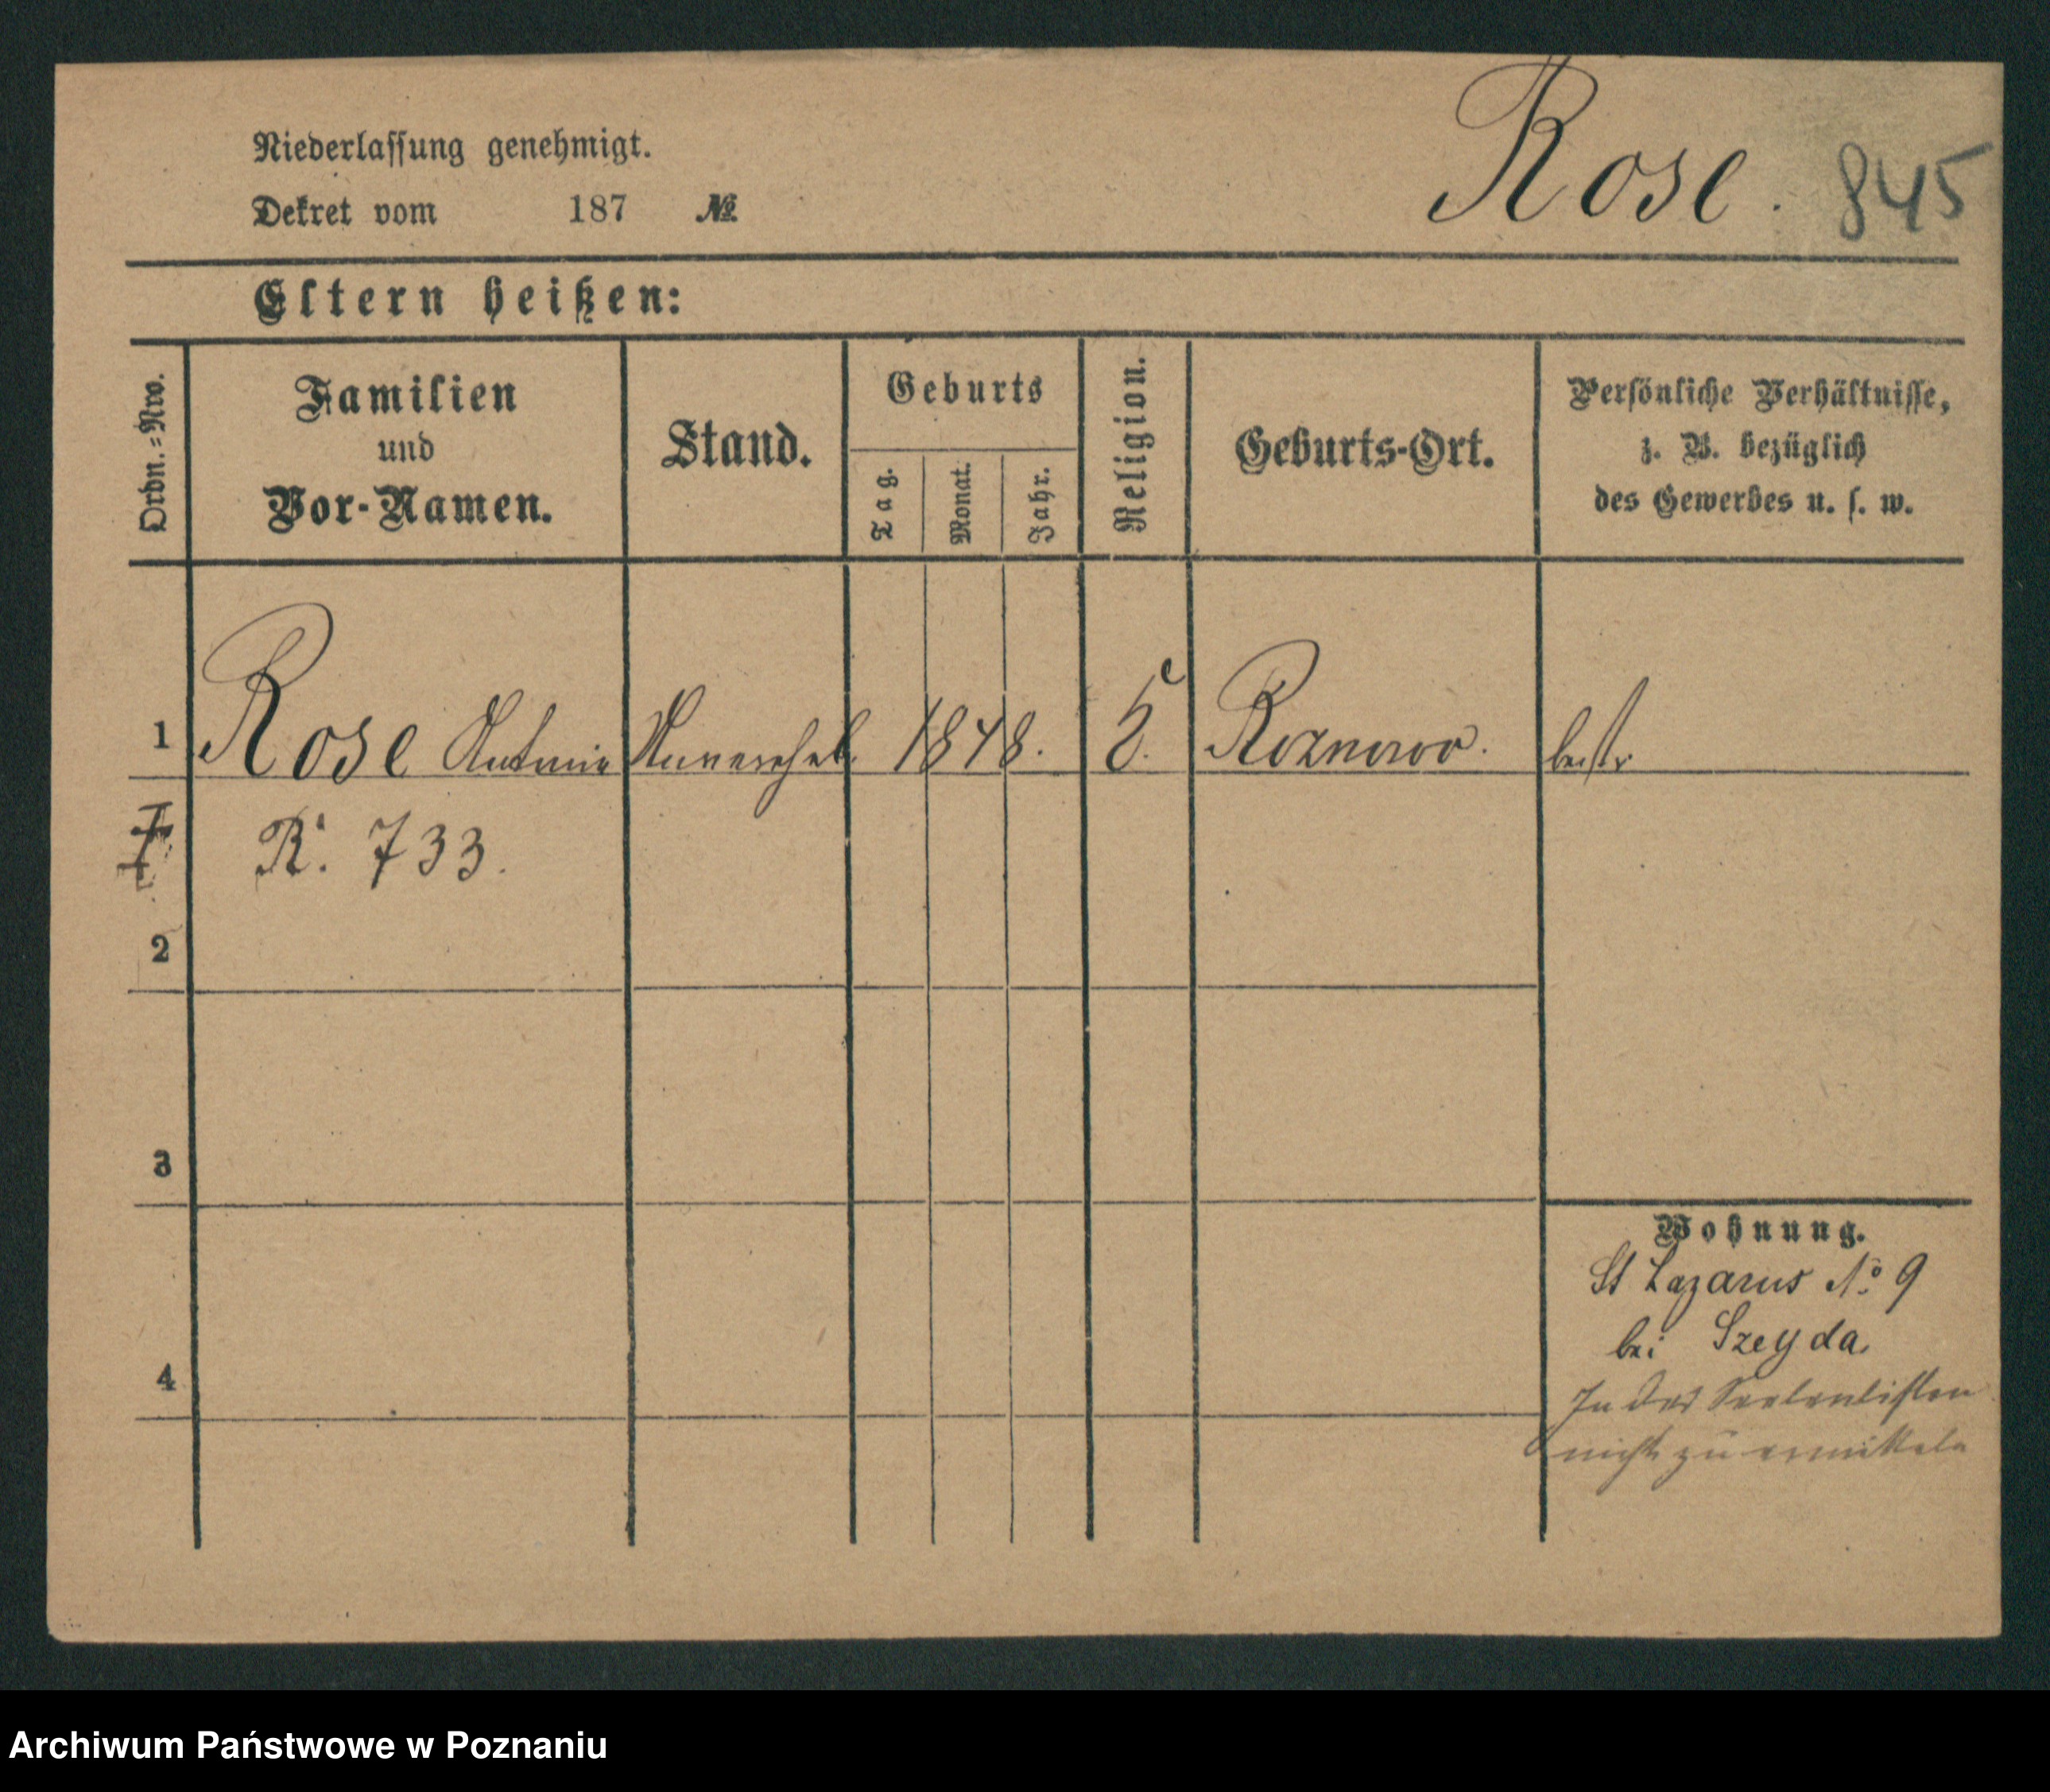 Niederlassung genehmigt.
Rose. 845
Dekret vom 187 №
Eltern heißen:
Ordn.=Nro.
Familien
und
Vor-Namen.
Stand.
Geburts
Tag.
Monat.
Jahr.
Religion.
Geburts-Ort.
Persönliche Verhältnisse,
z. B. bezüglich
des Gewerbes u. s. w.
1 Rose Antonie Unverehel. 1848. Roznowo.
R. 733.
2
3
Wohnung.
St Lazarus No 9
bei Szeyda.
4
In der Seelenlisten
nicht zu ermitteln
Archiwum Państwowe w Poznaniu